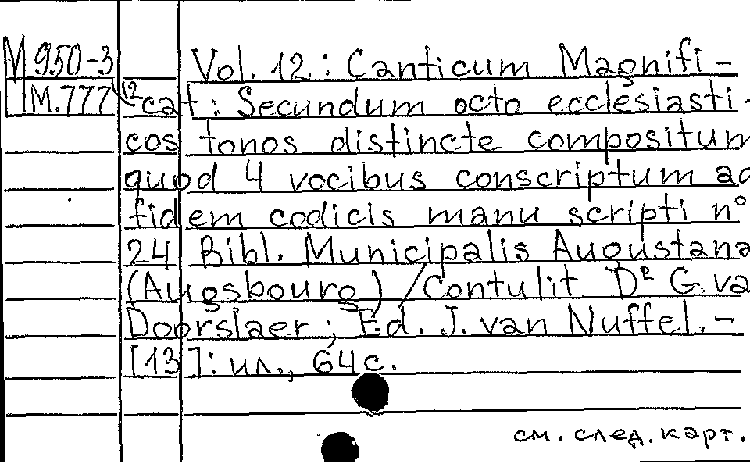 М 950-3 Vol. 12 : Canticum Magnifi-
М.777 12 cat : Secundum octo ecclesiasti-
cos tonos distincte compositum
quod 4 vocibus conscriptum ad
fidem codicis manu scripti n°
24 Bibl. Municipalis Augustana
(Augsbourg) / Contulit Dr G. va
Doorslaer ; Ed. J. van Nuffel. -
[13] : ил., 64 с.
см. след. карт.